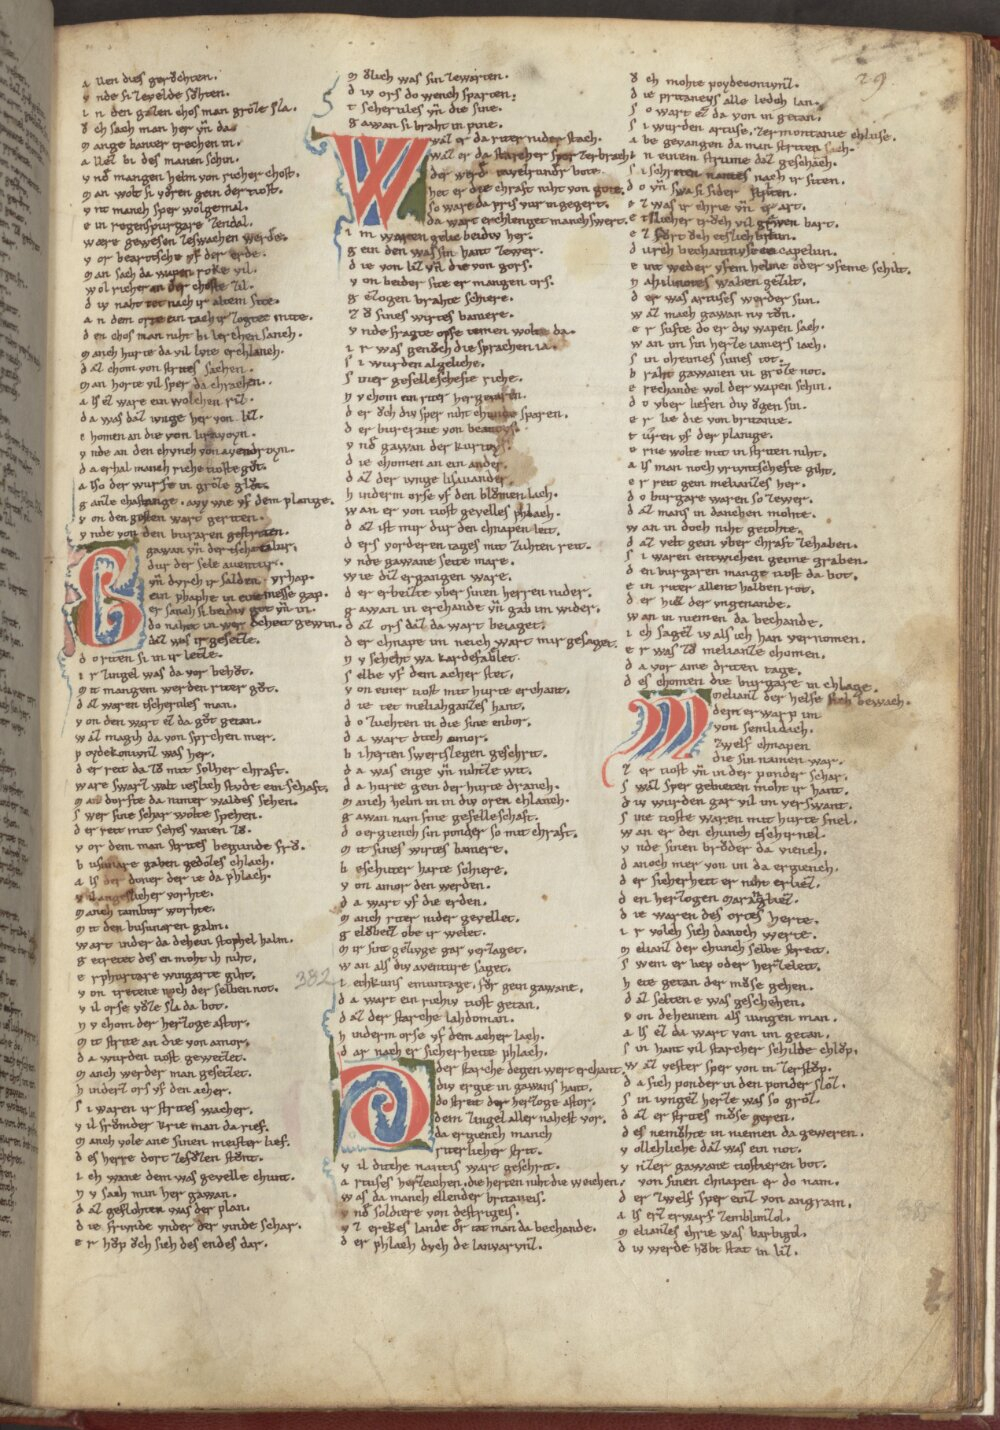 a llen dies gerǒchten.
v nde si ze velde sǒhten.
i n den gazen chos man groze sla.
ǒ ch sach man her vn̄ da
m ange banier trechen in.
a llez bi des manen schin.
v nd̄ mangen helm von richer chost.
m an wolt si vǒren gein der tiost.
v nt manch sper wolgemal.
e in regenspurgare zendal.
w ære gewesen ze swachen werde.
v or bearotsche vf der erde.
m an sach da wapen roke vil.
w ol richer an der choste zil.
d iv naht tet nach ir altem site.
a n dem orte ein tach ir zogete mite.
d en chos man niht bi lerchen sanch.
m anch hurte da vil lvte erchlanch.
d az chom von strites sachen.
m an horte vil sper da chrachen.
a ls ez ware ein wolchen riz.
d a was daz ivnge her von liz.
e homen an die von lirivoyn.
v nde an den chvnch von avendroyn.
d a erhal manch riche tioste gǒt.
a lso der wurfe in groze glǒt.
g anze chastange. avy wie vf dem planige.
v on den gesten wart geriten.
v nde von den buraren gestriten.
Gawan vn̄ der tschatalur.
dur der sele aventiur.
vn̄ dvrch ir salden vrhap.
ein phaphe in eine messe gap.
er sanch si beidiv got vn̄ in.
do nahet in wer decheit gewin.
daz was ir gesetze.
d o riten si in ir letze.
i r zingel was da vor behǒt.
m it mangem werden riter gǒt.
d az waren tschervles man.
v on den wart ez da gǒt getan.
w az magih da von sprchen mer.
p oydekonivnz was her.
d er reit da zǒ mit solher chraft.
w are swarz walt ieslich stvde ein schaft.
m an dorfte da nimer waldes sehen.
s wer sine schar wolte spehen.
d er reit mit sehs vanen zǒ.
v or dem man strites begunde frǒ.
b usinare gaben gedozes chlach.
a ls der doner der ie da phlach.
v il angeslicher vorhte.
m anch tambur worhte.
m it den busunaren galm.
w art inder da dehein stophel halm.
g etretet des en moht ih niht.
e rphurtare wingarte giht.
v on tretene noch der selben not.
v il orse vǒze sla da bot.
n v chom der herzoge astor.
m it strite an die von amor.
d a wurden tiost gewetzet.
m anch werder man gesetzet.
h inderz ors vf den acher.
s i waren ir strites wacher.
v il frǒmder krie man da rief.
m anch vole ane sinen meister lief.
d es herre dort zefǒzen stǒnt.
i ch wane dem was gevelle chunt.
n v sach min her gawan.
d az geflohten was der plan.
d ie frivnde vnder der vinde schar.
e r hǒp ǒch sich des endes dar.
m ǒlich was sin zewarten.
d iv ors do wench sparten.
t schervles vn̄ die sine.
g awan si braht in pine.
Waz er da riter nider stach.
waz er da starcher sper zerbrach.
der werd tavelrundr bote.
het er die chraft niht von gote.
so ware da pris vur in gegert.
da wart erchlenget manch swert.
i m waren gelie beidiv her.
g ein den was sin hant zewer.
d ie von liz vn̄ die von gors.
v on beider site er mangen ors.
g ezogen brahte schiere.
z ǒ sines wirtes baniere.
v nde fragte opse iemen wolte da.
i r was genǒch die sprachen ia.
s i wurden al geliche.
s iner geselleschefte riche.
n v chom ein riter her gevaren.
d er ǒch div sper niht chunde sparen.
d er burcrave von beavoys.
v nd̄ gawan der kurtoys.
d ie chomen an ein ander.
d az der ivnge lisavander.
h inderm orse vf den blǒmen lach.
w an er von tiost gevelles phlach.
d az ist mir dur den chnapen leit.
d ers vorderen tages mit zuhten reit.
v nde gawane seite mare.
w ie diz ergangen ware.
d er erbeizte vber sinen herren nider.
g awan in erchande vn̄ gab im wider.
d az ors daz da wart beiaget.
d er chnape im neich wart mir gesaget.
n v seheht wa kardefablet.
s elbe vf dem acher stet.
v on einer tiost mit hurte erchant.
d ie tet meliahganzes hant.
d o zuchten in die sine enbor.
d a wart diche amor.
b i herten swertslegen geschrit.
d a was enge vn̄ nihtze wit.
d a hurte gein der hurte dranch.
m anch helm in in div oren chlanch.
g awan nam sine geselleschaft.
d o ergiench sin ponder so mit chraft.
m it sines wirtes baniere.
b eschutter harte schiere.
v on amor den werden.
d a wart vf die erden.
m anch riter nider gevellet.
g elǒbetz obe ir wellet.
m ir sint gezivge gar verzaget.
w an als div aventure saget.
l echkuns emuntage. fǒr gein gawane.
d a wart ein richiv tiost getan.
d az der starche lahdoman.
h inderm orse vf dem acher lach.
d ar nach er sicherheite phlach.
Der starche degen wert erchant.
div ergie in gawans hant.
do streit der herzoge astor.
dem zingel aller nahest vor.
da ergiench manch
riterlicher strit.
v il diche nantis wart geschrit.
a rtuses herzeichen. die herten niht die weichen.
w as da manch ellender britaneis.
v nd̄ soldiere von destrigeis.
v z erekes lande ǒr tat man da bechande.
d er phlach dvch de lanvarvnz.
ǒ ch mohte poydeconivnz.
d ie pritaneys alle ledch lan.
s o wart ez da von in getan.
s i wurden artuse. ze rmontanie chluse.
a be gevangen da man striten sach.
i n einem sturme daz geschach.
s i schriten nantes nach ir siten.
d o vn̄ swa si sider striten.
e z was ir chrie vn̄ ir art.
e tslicher trǒch vil grawen bart.
e z fǒrt ǒch etslich britun.
d urch bechantnvsse e capelun.
e int weder vfem helme oder vfeme schilt.
n ah ilinotes waben gezilt.
d er was artuses werder sun.
w az mach gawan nv tǒn.
e r sufte do er div wapen sach.
w an im sin herze iamers iach.
s in oheimes sunes tot.
b raht gawanen in groze not.
e rechande wol der wapen schin.
d o vber liefen div ǒgen sin.
e r lie die von britanie.
t uren vf der planige.
o rne wolte mit in striten niht.
a ls man noch vriuntschefte giht.
e r reit gein melianzes her.
d o burgare waren so zewer.
d az mans in danchen mohte.
w an in doch niht getohte.
d az velt gein vber chraft zehaben.
s i waren entwichen geime graben.
d en burgaren mange tiost da bot.
e in riter allent halben rot.
d er hiez der vngenande.
w an in niemen da bechande.
i ch sagez iv als ich han vernomen.
e r was zǒ melianze chomen.
d a vor ame driten tage.
d es chomen die burgare in chlage.
Melianz der helfe sich bewach.
dern erwarp im
von semlidach.
zwelf chnapen
die sin namen war.
z er tiost vn̄ in der ponder schar.
s waz sper gebieten moht ir hant.
d iv wurden gar vil im verswant.
s ine tioste waren mit hurte snel.
w an er den chunch tschirnel.
v nde sinen brǒder da viench.
d anoch mer von im da ergiench.
d er sicherheit er niht erliez.
d en herzogen maragliez.
d ie waren des ortes herte.
i r volch sich danoch werte.
m elianz der chunch selbe streit.
s wem er liep oder herzeleit.
h ete getan der mǒse gehen.
d az selten e was geschehen.
v on deheinem als iungen man.
a ls ez da wart von im getan.
s in hant vil starcher schilde chlǒp.
w az vester sper von in zerstǒp.
d a sich ponder in den ponder slǒz.
s in ivngez herze was so groz.
d az er strites mǒse geren.
d es nemǒhte in niemen da geweren.
v ollehliche daz was ein not.
v nzer gawane tiostieren bot.
v on sinen chnapen er do nam.
d er zwelf sper einz von angram.
a ls erz erwarf zemblimzol.
m elianzes chrie was barbigol.
d iv werde hǒbt stat in liz.
29
382